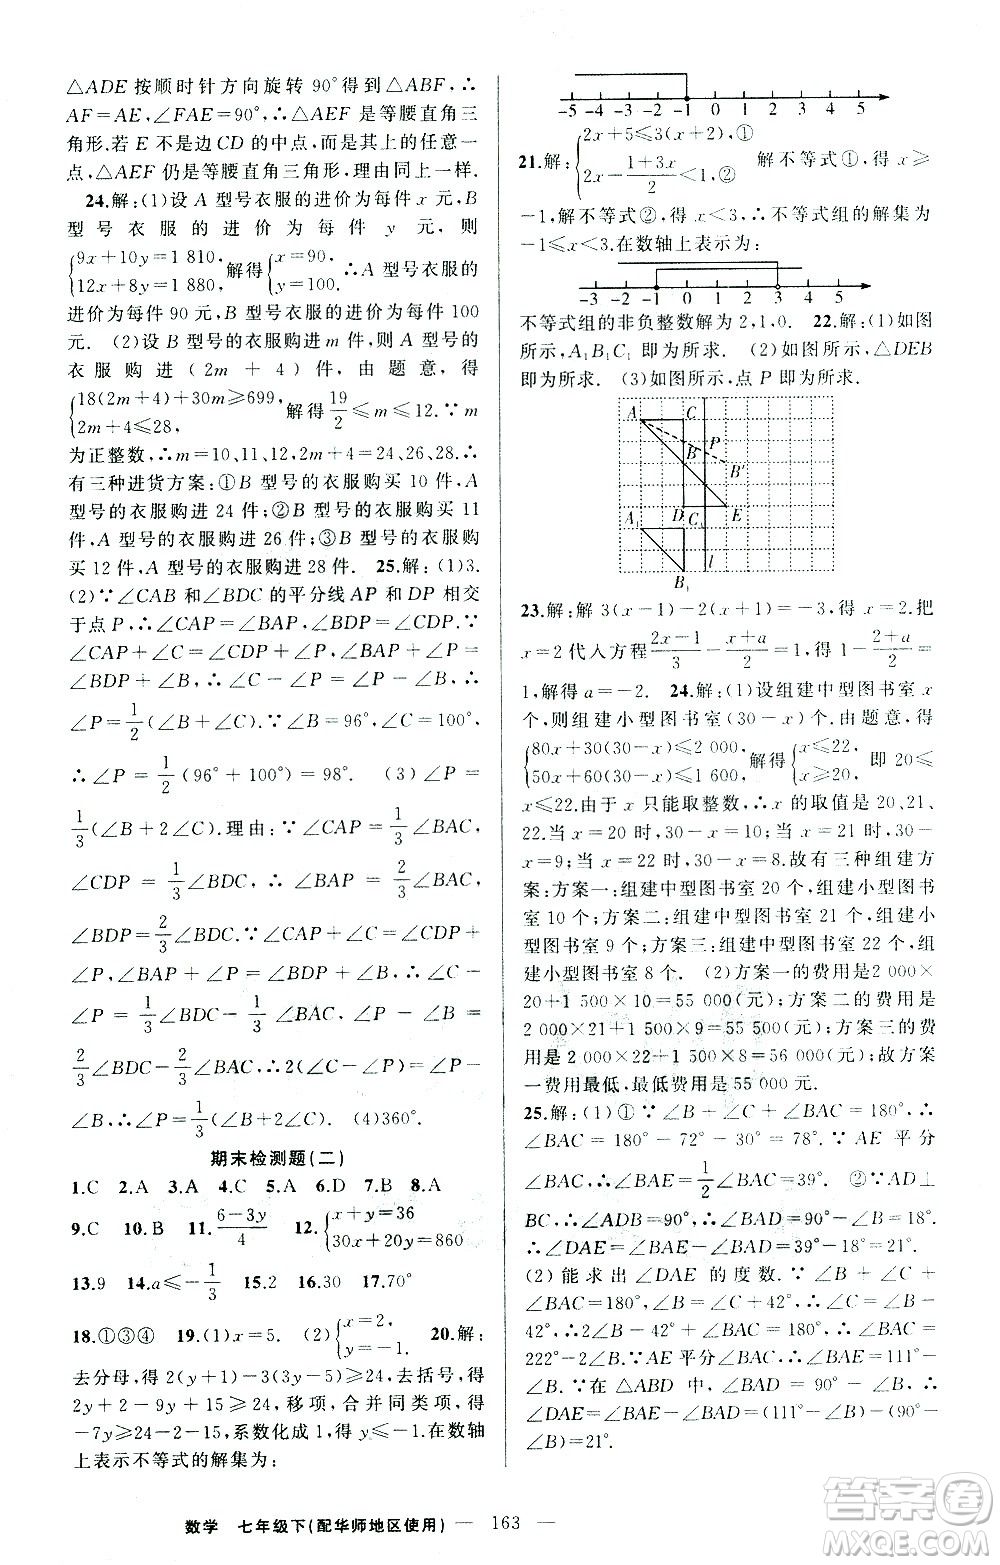 △ADE 按顺时针方向旋转 90°得到△ABF,∴
AF=AE,∠FAE=90°,∴△AEF 是等腰直角三
角形.若 E 不是边 CD 的中点,是任意的一
点,△AEF 仍是等腰直角三角形,理由同上一样.
24.解:(1)设 A 型号衣服的进价为每件 x 元,B
型号衣服的进价为每件 y 元,则
{9x+10y=1 810, 12x+8y=1 880,解得{x=90, y=100.∴A 型号衣服的
进价为每件 90 元,B 型号衣服的进价为每件 100
元. (2)设 B 型号的衣服购进 m 件,则 A 型号的
衣服购进(2m+4)件,根据题意,得
{18(2m+4)+30m≥699, 2m+4≤28, 解得 19/2≤m≤12.∵m
为正整数,∴m=10、11、12,2m+4=24、26、28.∴
有三种进货方案:①B 型号的衣服购买 10 件,A
型号的衣服购进 24 件;②B 型号的衣服购买 11
件,A 型号的衣服购进 26 件;③B 型号的衣服购
买 12 件,A 型号的衣服购进 28 件. 25.解:(1)3.
(2)∵∠CAB 和∠BDC 的平分线 AP 和 DP 相交
于点 P,∴∠CAP=∠BAP,∠CDP=∠BDP,∵
∠CAP+∠C=∠CDP+∠P,∠BAP+∠P=
∠BDP+∠B,∴∠C-∠P=∠P-∠B,∴
∠P=1/2(∠B+∠C).∵∠B=96°,∠C=100°,
∴∠P=1/2(96°+100°)=98°. (3)∠P=
1/3(∠B+2∠C).理由:∵∠CAP=1/3∠BAC,
∠CDP=1/3∠BDC,∴∠BAP=2/3∠BAC,
∠BDP=2/3∠BDC.∵∠CAP+∠C=∠CDP+
∠P,∠BAP+∠P=∠BDP+∠B,∴∠C-
∠P=1/3∠BDC-1/3∠BAC,∠P-∠B=
2/3∠BDC-2/3∠BAC,∴2(∠C-∠P)=∠P-
∠B,∴∠P=1/3(∠B+2∠C). (4)360°.
期末检测题(二)
1.C 2.A 3.A 4.C 5.A 6.D 7.B 8.A
9.C 10.B 11.(6-3y)/4 12.{x+y=36, 30x+20y=860
13.9 14.a≤-1/3 15.20 16.30 17.70°
18.①③④ 19.(1)x=5. (2){x=2, y=-1. 20.解:
去分母,得 2(y+1)-3(3y-5)≥24,去括号,得
2y+2-9y+15≥24,移项,合并同类项,得
-7y≥24-2-15,系数化成 1,得 y≤-1.在数轴
上表示不等式的解集为:
-5 -4 -3 -2 -1 0 1 2 3 4 5
21.解:{2x+5≤3(x+2),① 2x-(1+3x)/2<1,② 解不等式①,得 x≥
-1,解不等式②,得 x<3,∴不等式组的解集为
-1≤x<3,在数轴上表示为:
-3 -2 -1 0 1 2 3 4 5
不等式组的非负整数解为 2,1,0. 22.解:(1)如图
所示,A₁B₁C₁ 即为所求. (2)如图所示,△DEB
即为所求. (3)如图所示,点 P 即为所求.
A C
B P
B′
A₁ D C₁ E
B₁ l
23.解:解 3(x-1)-2(x+1)=-3,得 x=2.把
x=2 代入方程(2x-1)/3-(x+a)/2=1,得 1-(2+a)/2=
1,解得 a=-2. 24.解:(1)设组建中型图书室 x
个,则组建小型图书室(30-x)个.由题意,得
{80x+30(30-x)≤2 000, 50x+60(30-x)≤1 600,解得{x≤22, x≥20.即 20≤
x≤22.由于 x 只能取整数,∴x 的取值是 20、21、
22.当 x=20 时,30-x=10;当 x=21 时,30-
x=9;当 x=22 时,30-x=8.故有三种组建方
案:方案一:组建中型图书室 20 个,组建小型图书
室 10 个;方案二:组建中型图书室 21 个,组建小
型图书室 9 个;方案三:组建中型图书室 22 个,组
建小型图书室 8 个. (2)方案一的费用是 2 000×
20+1 500×10=55 000(元);方案二的费用是
2 000×21+1 500×9=55 500(元);方案三的费
用是 2 000×22+1 500×8=56 000(元).故方案
一费用最低,最低费用是 55 000 元.
25.解:(1)①∵∠B+∠C+∠BAC=180°,∴
∠BAC=180°-72°-30°=78°.∵AE 平分
∠BAC,∴∠BAE=1/2∠BAC=39°. ②∵AD⊥
BC,∴∠ADB=90°,∴∠BAD=90°-∠B=18°.
∴∠DAE=∠BAE-∠BAD=39°-18°=21°.
(2)能求出∠DAE 的度数.∵∠B+∠C+
∠BAC=180°,∠B=∠C+42°,∴∠C=∠B-
42°,∴2∠B+∠BAC=222°,∴∠BAC=
222°-2∠B.∵AE 平分∠BAC,∴∠BAE=111°-
∠B.∵在△ABD 中,∠BAD=90°-∠B,∴
∠DAE=∠BAE-∠BAD=(111°-∠B)-(90°-
∠B)=21°.
数学 七年级下(配华师地区使用) — 163 —
答案圈
MXQE.COM